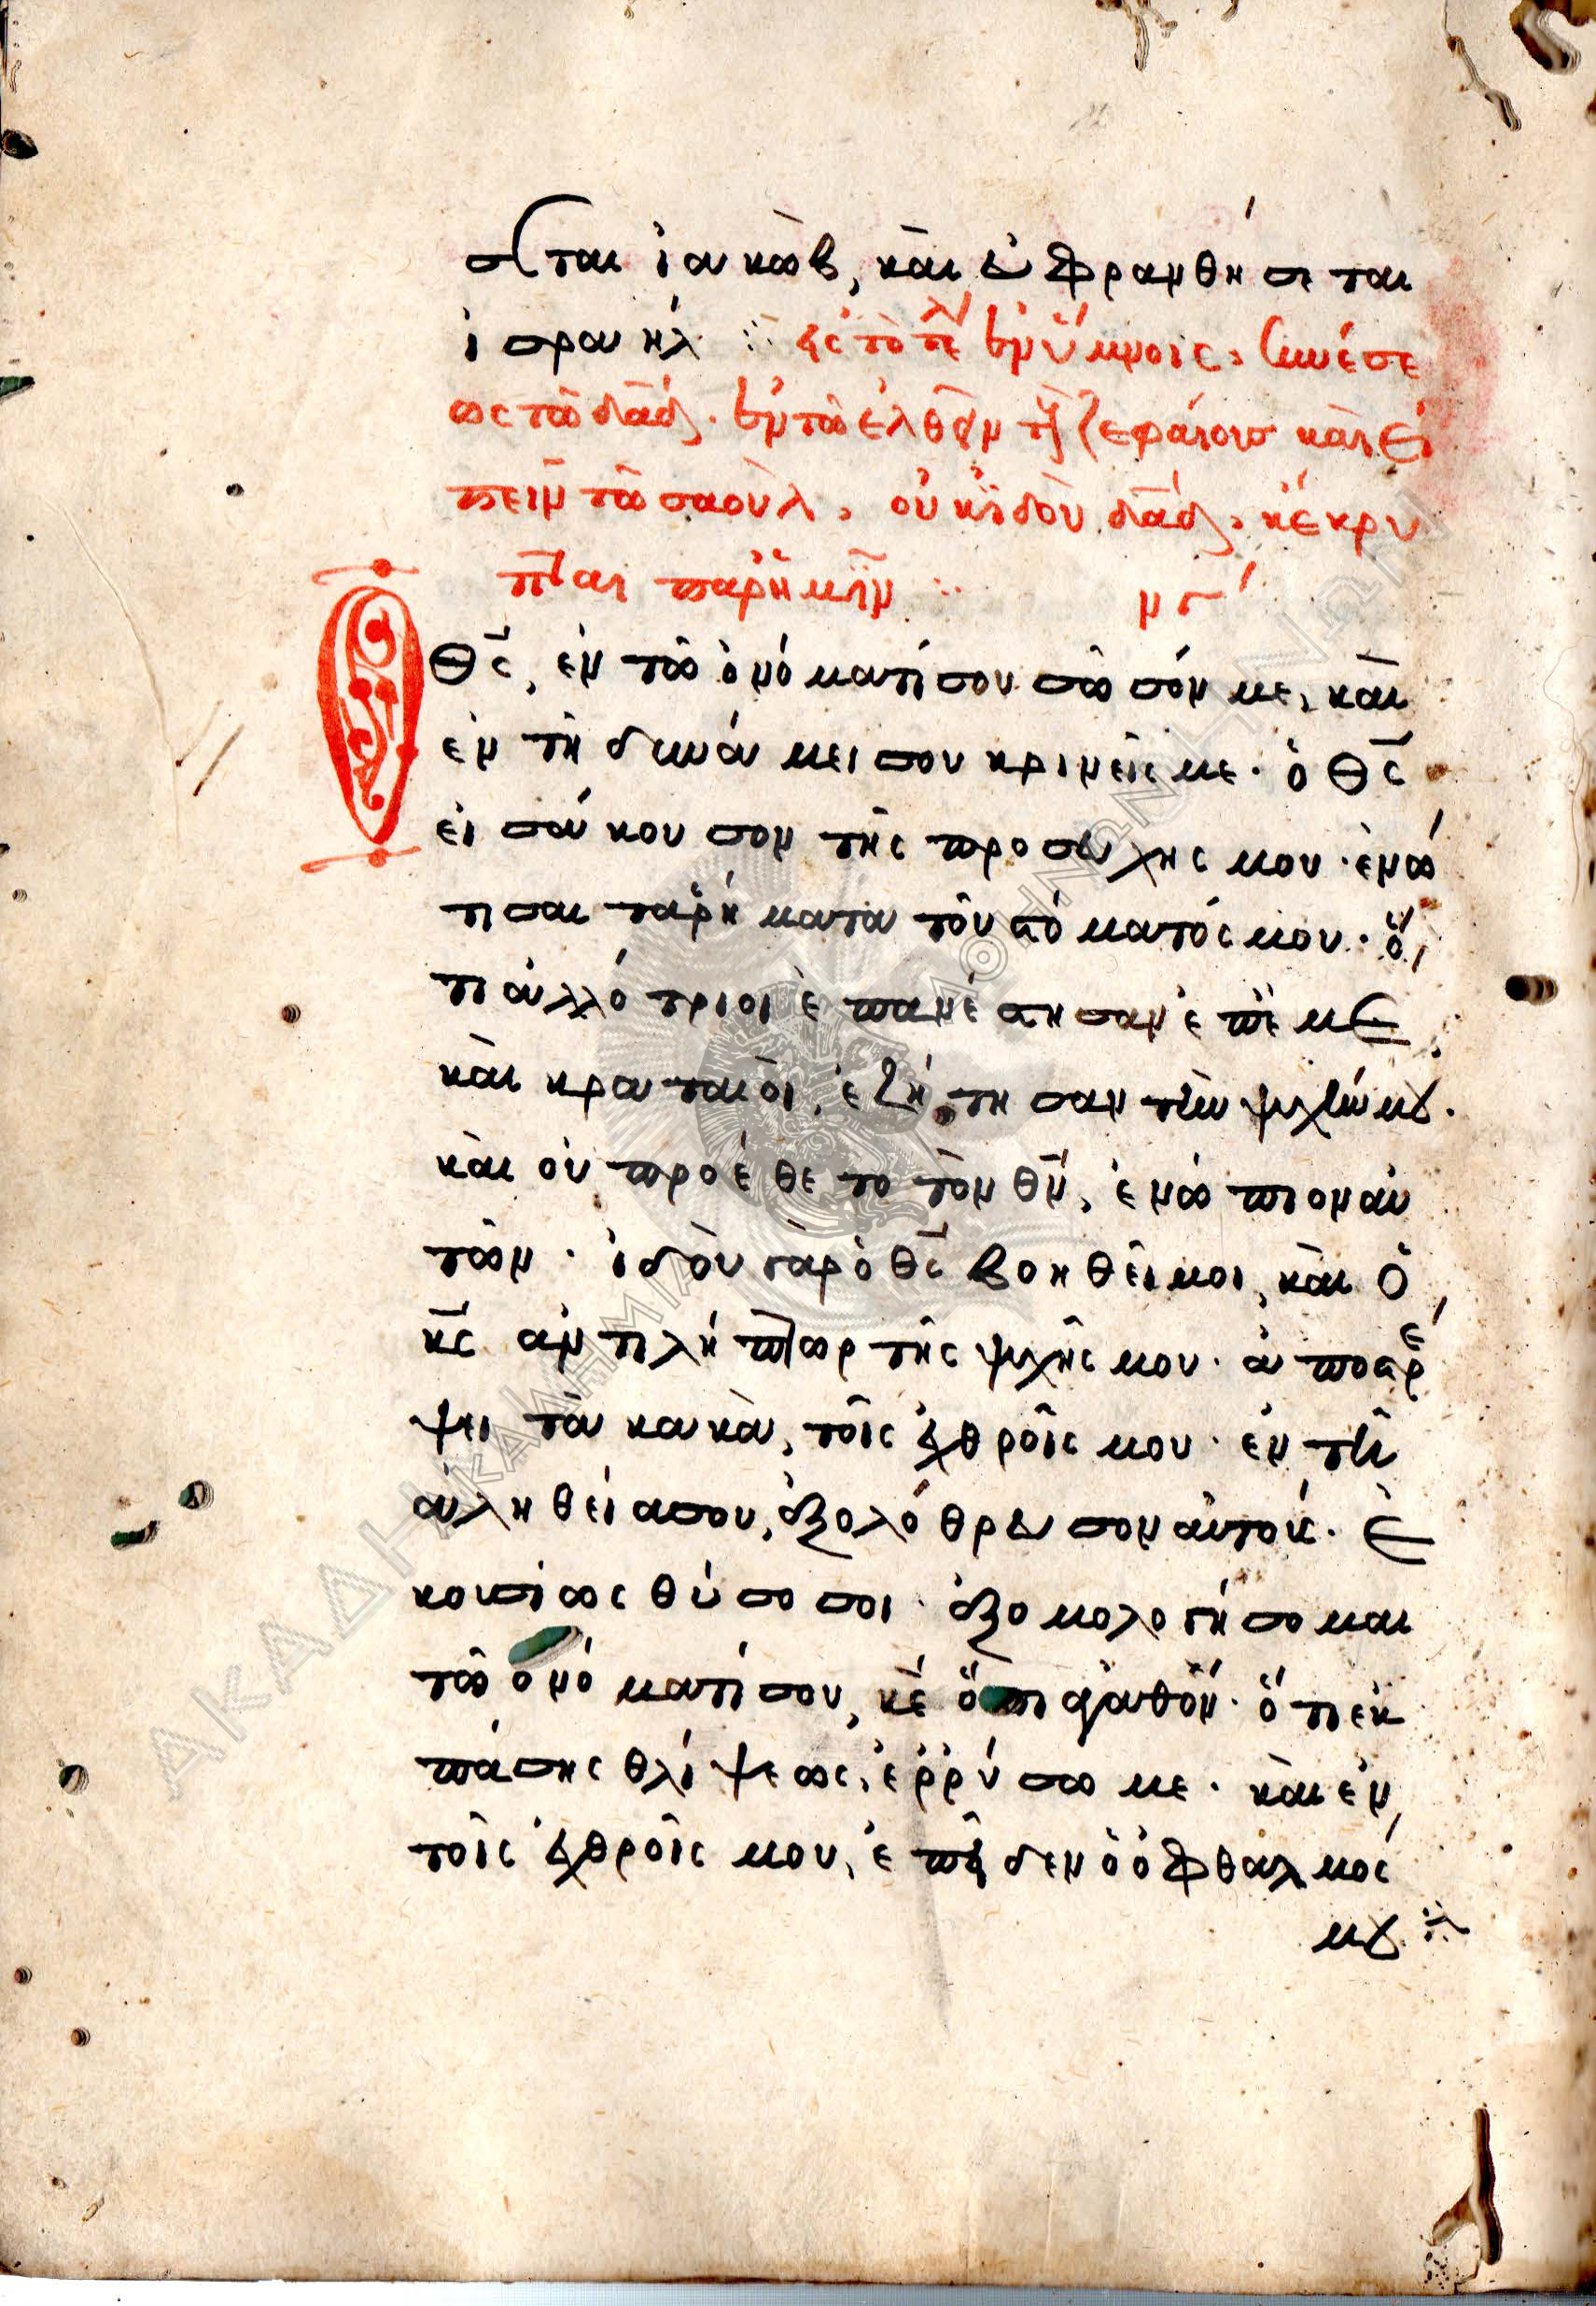 σεται ἰακὼβ, καὶ εὐφρανθήσεται
ἰσραήλ ⁘ εἰς τὸ τέλ ἐν ὕμνοις, συνέσε
ως τῶ δᾱδ. ἐν τῶ ἐλθεῖν τοὺς ζεφαίους καὶ εἰ
πεῖν τῶ σαοὺλ, οὐκ ἰδοὺ δᾱδ, κέκρυ
πται παρ' ἡμῖν ⁘ νγ´
Ὁ θς̄, ἐν τῶ ὀνόματί σου σῶσόν με, καὶ
ἐν τῆ δυνάμει σου κρινεῖς με. ὁ θς̄
εἰσάκουσον τῆς προσευχῆς μου. ἐνώ
τισαι τὰ ῥήματα τοῦ στόματός μου. ὅ
τι ἀλλότριοι ἐπανέστησαν ἐπ' ἐμὲ
καὶ κραταιοὶ, ἐζήτησαν τὴν ψυχήν μου.
καὶ οὐ προέθεντο τὸν θν̄, ἐνώπιον αὐ
τῶν. ἰδοὺ γὰρ ὁ θς̄ βοηθεῖ μοι, καὶ ὁ
κς̄ ἀντιλήπτωρ τῆς ψυχῆς μου. ἀποστρέ
ψει τὰ κακὰ, τοῖς ἐχθροῖς μου. ἐν τῆ
ἀληθεία σου, ἐξολόθρευσον αὐτούς. Ἑ
κουσίως θύσο σοι. ἐξομολογήσομαι
τῶ ὀνόματί σου, κε̄ ὅτι ἀγαθόν. ὅτι ἐκ
πάσης θλίψεως, ἐρρύσω με. καὶ ἐν
τοῖς ἐχθροῖς μου, ἐπεῖδεν ὁ ὀφθαλμός
μου ⁘
ΑΚΑΔΗΜΙΑ ΑΘΗΝΩΝ